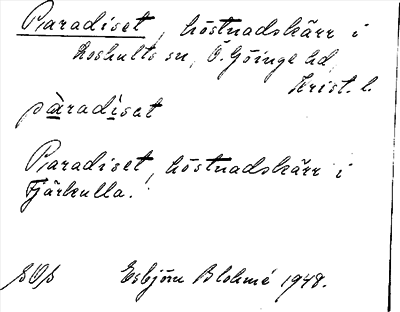 Paradiset, kostnadskärr i
Loshults sn, Ö. Göinge hd,
Krist. l.
pàradiset
Paradiset, kostnadskärr i
Tjärkulla.
Esbjörn Blohmé 1948.